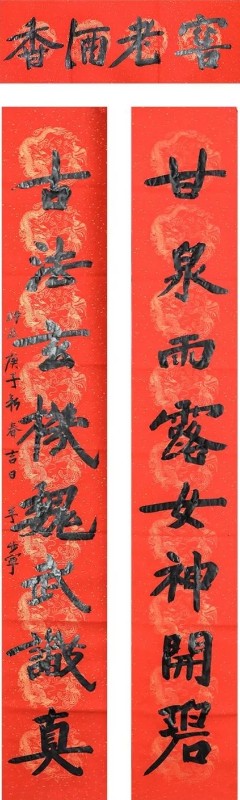 窖老酒香
甘泉雨露女神開碧
古法玄機魏武識真
庚子新春吉日